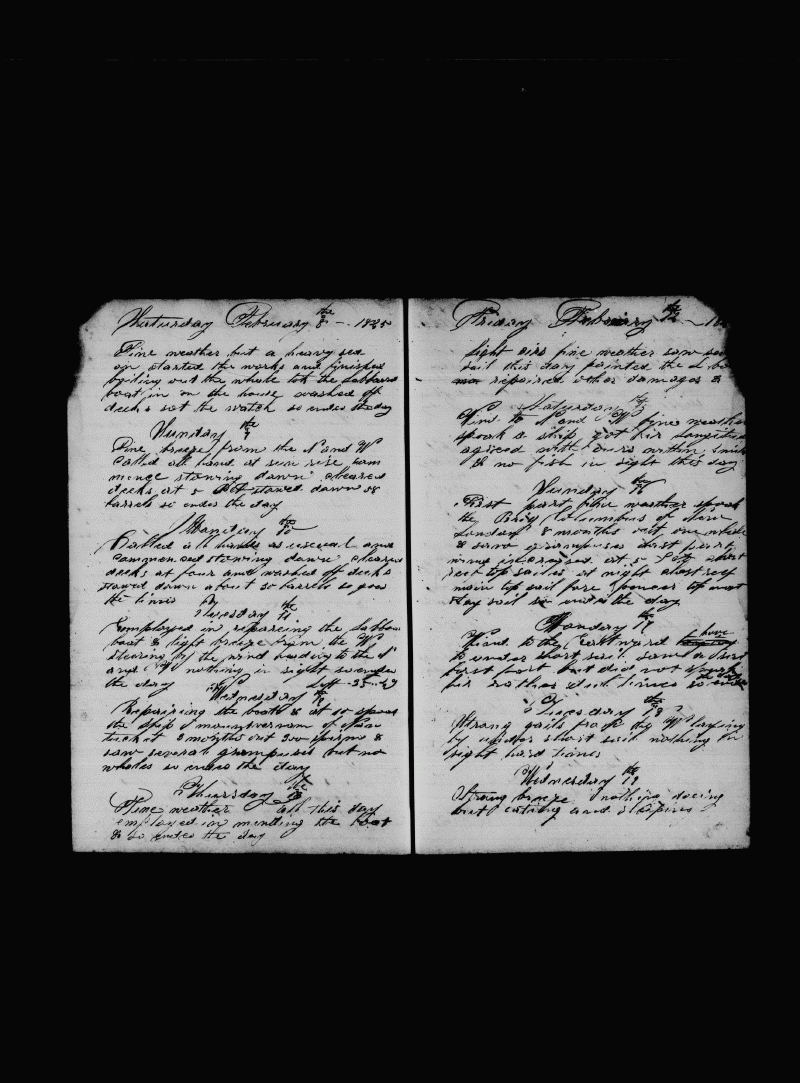 Saturday February the 8 - 1835
Fine weather but a heavy sea
on started the works and finished
boiling out the whale took the Labbard
boat in on the house washed off
decks set the watch so ends the day
Sunday the 9
Fine breeze from the N and W
called all hands at sun rise com
menced stowing down cleared
decks at 5 stowed down 58
barrels so ends the day
Monday the 10
Called all hands as useual and
commenced stowing down cleared
decks at four and washed off decks
stowed down about 50 barrels so goes
the times
Tuesday the 11
Employed in repareing the Labbord
boat & light breeze from the W
stearing by the wind heading to the N
and W nothing in sight so ends
the day Latt 35-49
Wednesday the 12
Repairing the boat & at 10 spoke
the ship of Nan
tucket 2 months out 200 sperm &
saw several grampuses but no
whales so ends the day
Thursday the 13
Fine weather all this day
employed in mending the boat
& so ends the day
Friday February the 14 - 18
Light airs fine weather saw
sail this day painted the L bo
repaired other damages &
Saturday the 15
Wind to N and W fine weather
spoak a ship got his Longitud
agreed with ours within 5 mile
& no fish in sight this day
Sunday the 16
First part fine weather spoak
the Brig Columbus of New
London 8 months out one whale
& saw grampuses last part
wind increased at 5 PM short
reef top sailes at night close reef
main top sail fore spencer top mast
stay sail so ends the day
Monday the 17
Wind to the Eastward have
to under short sail saw a ship
first part but did not speak
her rather dull times so ends the day
Tuesday the 18
Strong gails from by W laying
by under short sail nothing in
sight hard times
Wednesday the 19
Strong breeze nothing doeing
but eating and sleeping